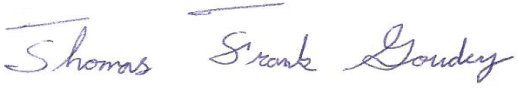 Thomas Frank Goudey